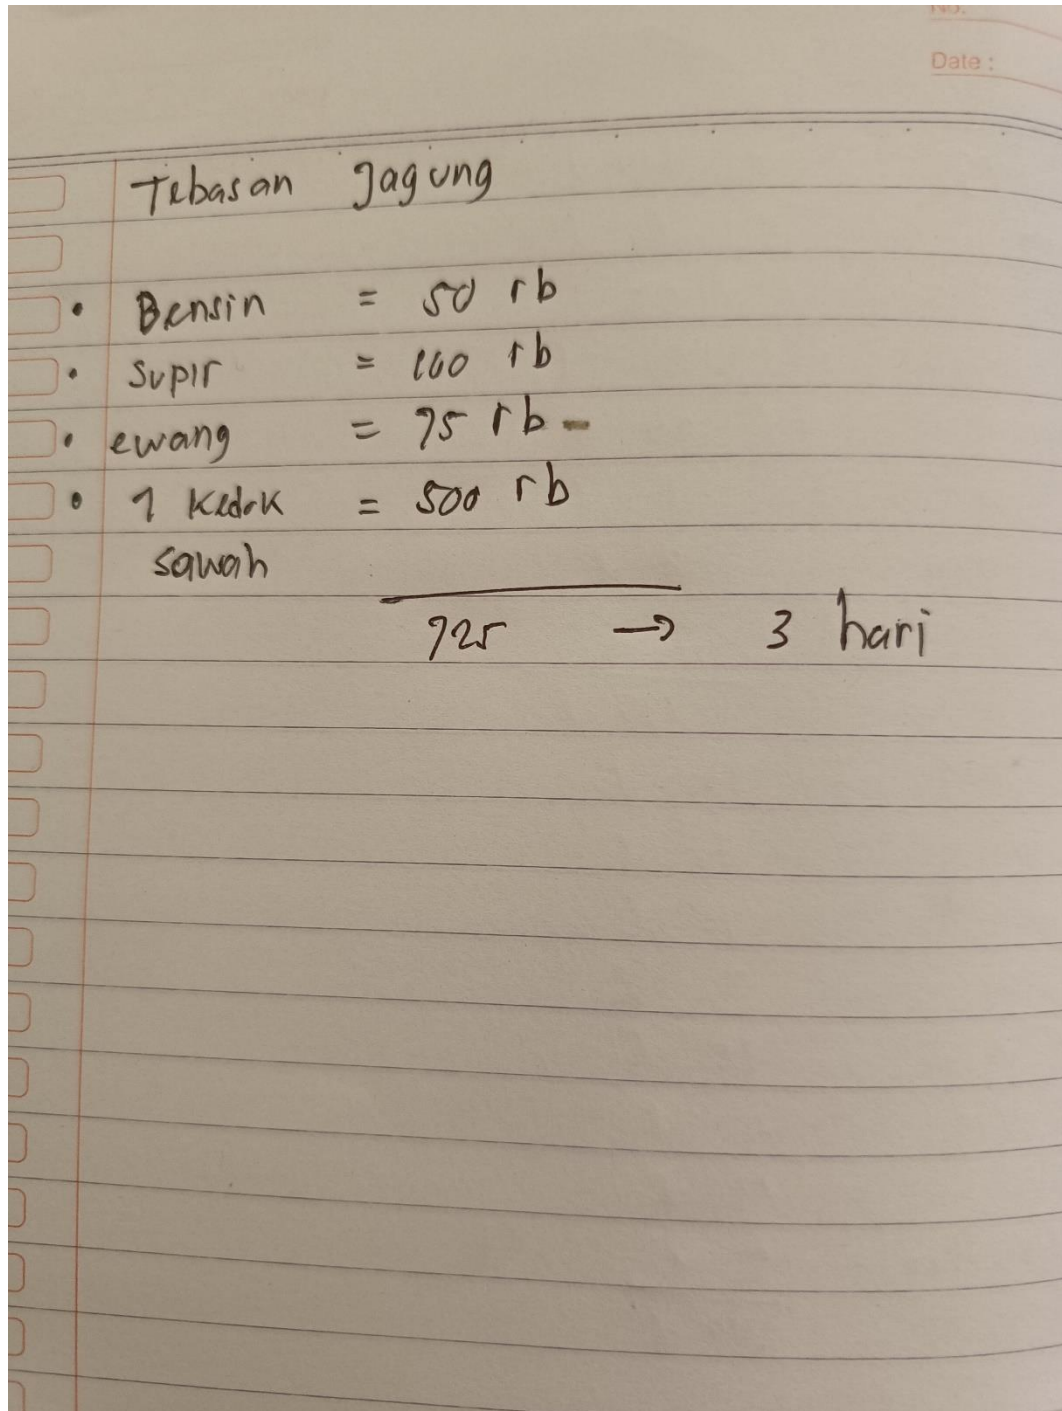 No.
Date :
Tebasan Jagung
• Bensin = 50 rb
• Supir = 100 rb
• ewang = 75 rb -
• 1 Kedok = 500 rb
sawah
725 → 3 hari